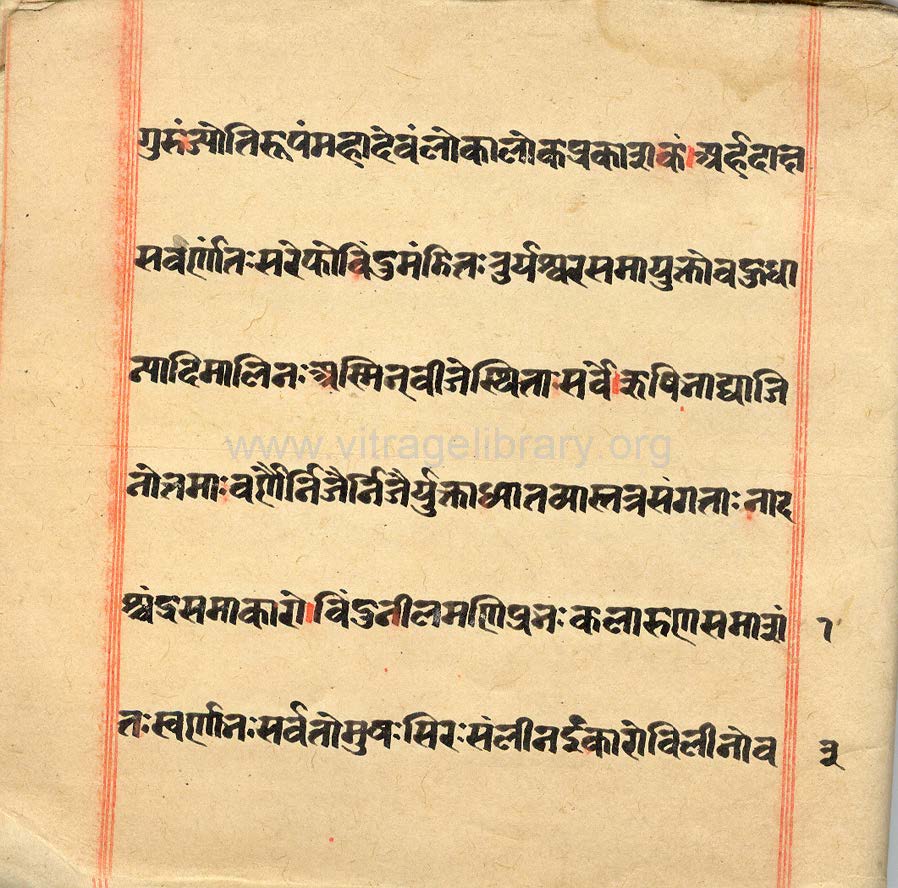 गुरुं ज्योतिरूपं महादेवं लोकालोकप्रकाशकं। अर्हदाद्य
सवर्णांतः सरेफो बिंदुमंडितः तुर्यश्वरसमायुक्तो बहुधा
त्यादिमालिनः अस्मिन् बीजे स्थिता सर्वे। रुषिनाद्या जि
नोत्तमाः वर्णैर्निजैर्निजैर्युक्ता ध्यातव्यास्तत्र संगताः नाद
श्चंद्रसमाकारो। बिंदुनीलमणिप्रभः कलारुणसमाशां
तः स्वर्णाभः सर्वतोमुषः सिरः संलीनईंकारो विलीनो व
www.vitragelibrary.org